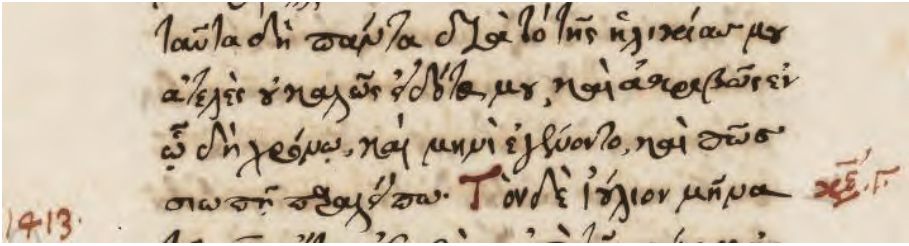 ταῦτα δὴ πάντα διὰ τὸ τῆς ἡλικίας μου
ἀτελὲς οὐ καλῶς εἰδότα μου, καὶ ἀκριβῶς ἐν
ᾧ δὴ χρόνῳ, καὶ μηνὶ ἐγένοντο, καὶ πῶς
σιωπῇ παραλείπω. Τὸν δὲ ἰούλιον μῆνα
1413.